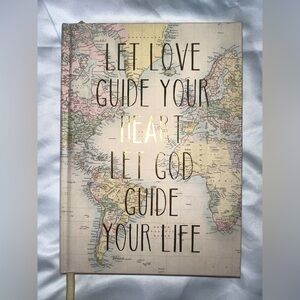 LET LOVE
GUIDE YOUR
HEART
LET GOD
GUIDE
YOUR LIFE